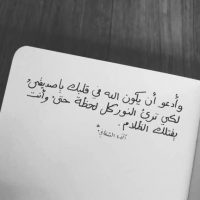 وأدعو أن يكون الله في قلبك يا صديقي
لكي ترى النور كل لحظة حتى وأنت
يقتلك الظلام.